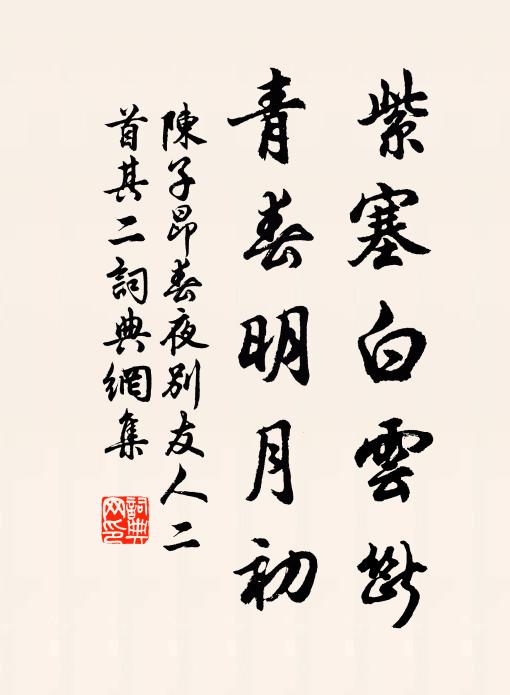 紫塞白雲斷
青春明月初
陳子昂春夜別友人二
首其二詞典網集
詞典網印